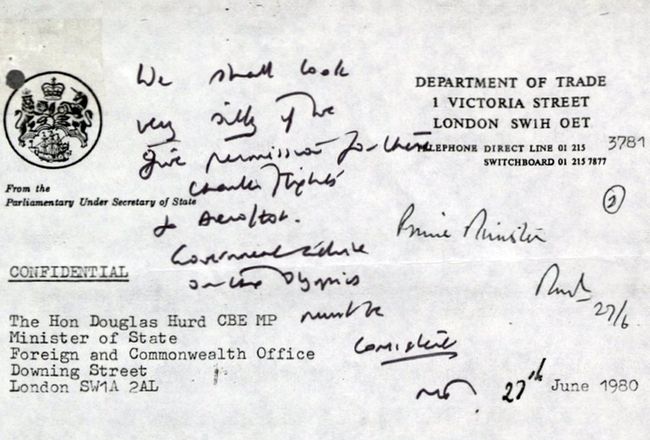 We shall look
very silly if we
give permission for these
charter flights
to Aeroflot.
Government advice
on the Olympics
must be
consistent
MT
DEPARTMENT OF TRADE
1 VICTORIA STREET
LONDON SW1H OET
TELEPHONE DIRECT LINE 01 215 3781
SWITCHBOARD 01 215 7877
From the
Parliamentary Under Secretary of State
2
Prime Minister
27/6
CONFIDENTIAL
The Hon Douglas Hurd CBE MP
Minister of State
Foreign and Commonwealth Office
Downing Street
London SW1A 2AL
27th June 1980